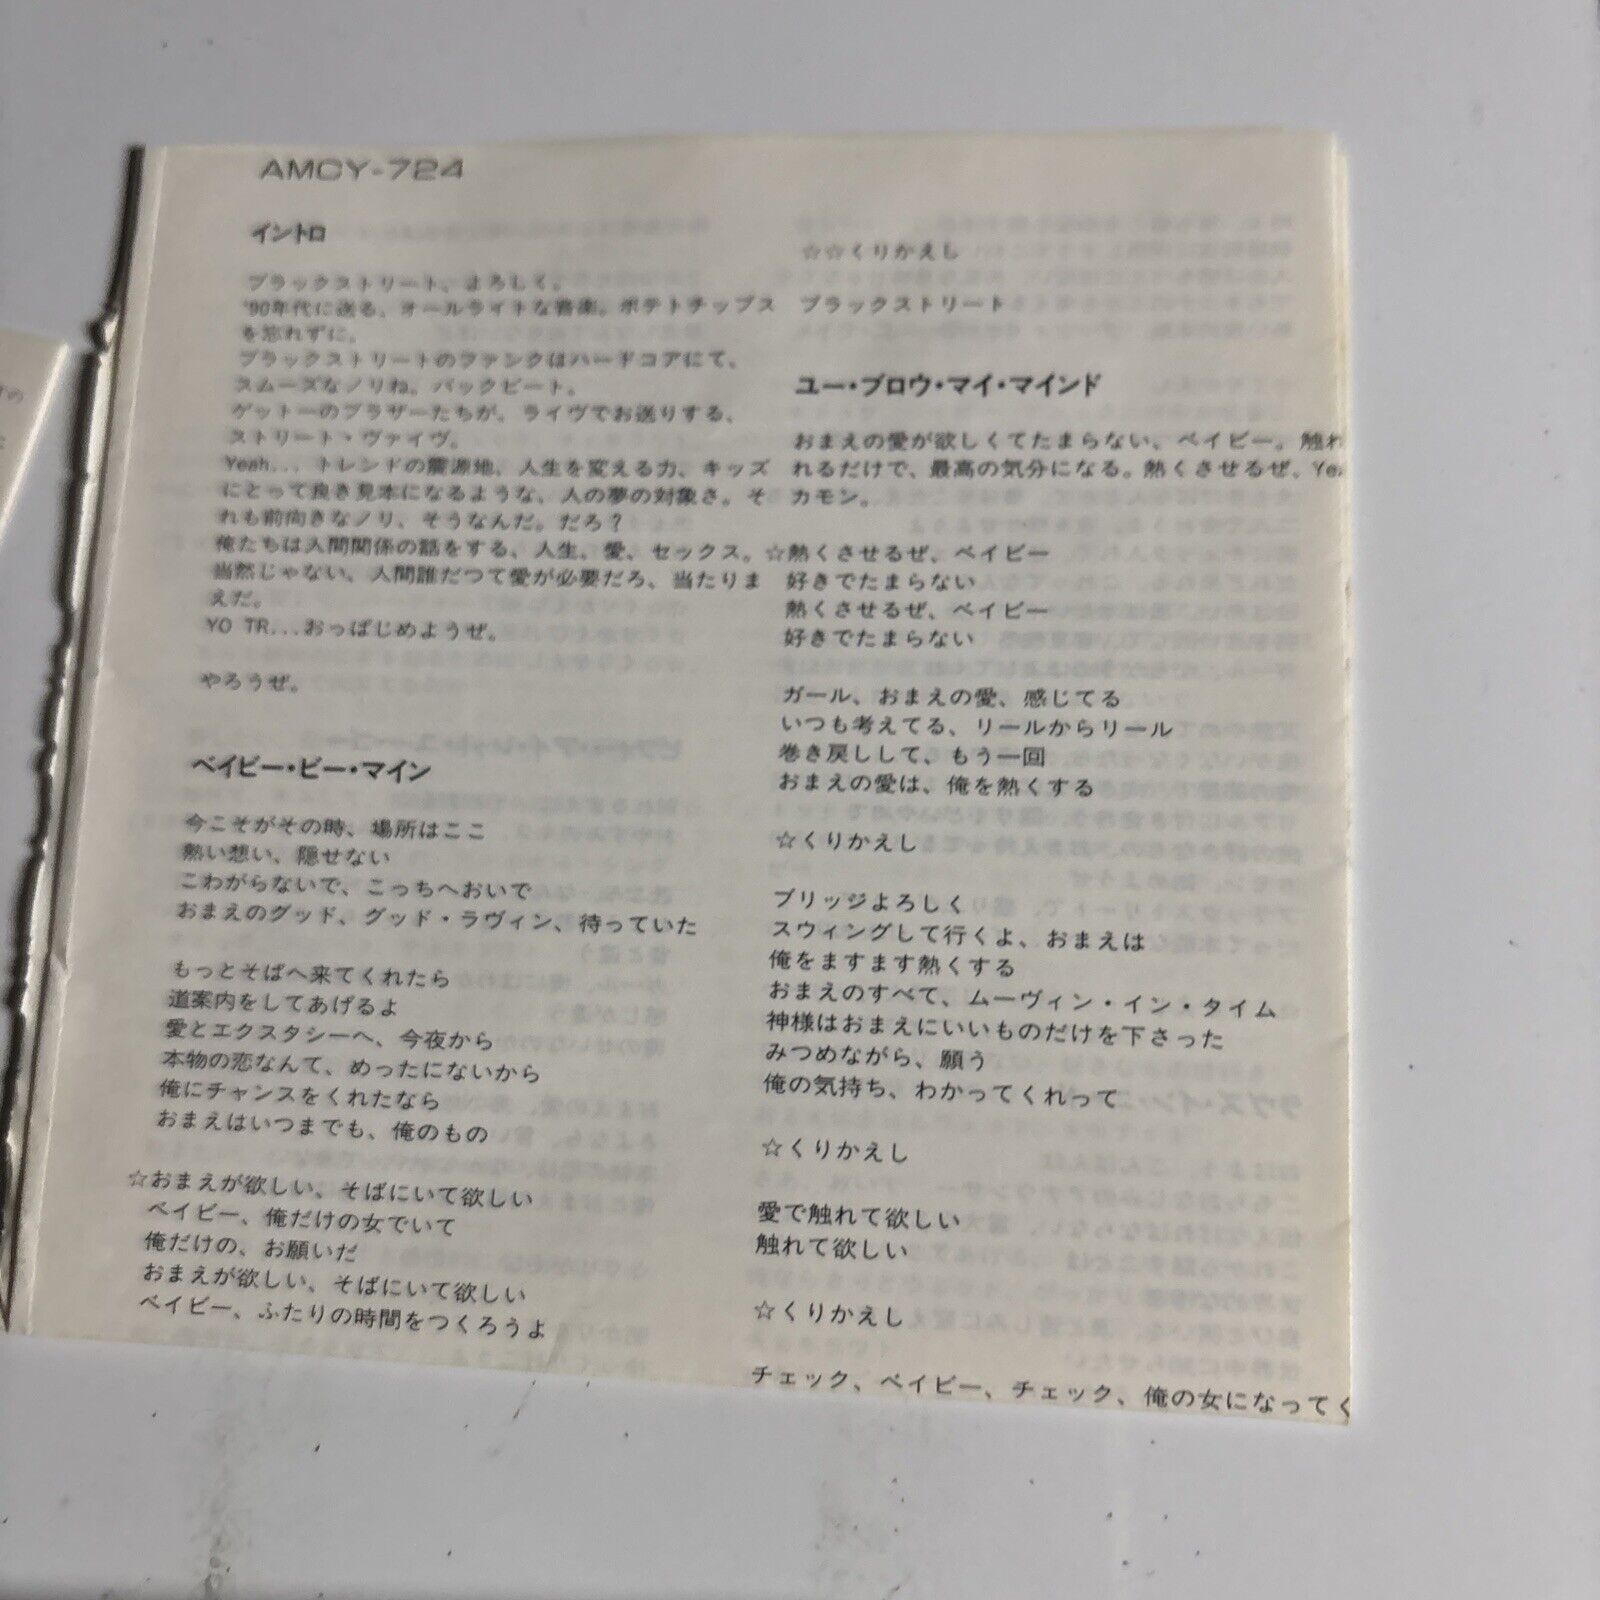 AMCY-724
イントロ
ブラックストリート、よろしく。
'90年代に送る、オールライトな音楽。ポテトチップス
を忘れずに。
ブラックストリートのファンクはハードコアにて、
スムーズなノリね。バックビート。
ゲットーのブラザーたちが、ライヴでお送りする、
ストリート・ヴァイヴ。
Yeah... トレンドの震源地、人生を変える力、キッズ
にとって良き見本になるような、人の夢の対象さ。そ
れも前向きなノリ、そうなんだ。だろ？
俺たちは人間関係の話をする、人生、愛、セックス。
当然じゃない。人間誰だつて愛が必要だろ、当たりま
えだ。
YO TR...おっぱじめようぜ。
やろうぜ。
ベイビー・ビー・マイン
今こそがその時、場所はここ
熱い想い、隠せない
こわがらないで、こっちへおいで
おまえのグッド、グッド・ラヴィン、待っていた
もっとそばへ来てくれたら
道案内をしてあげるよ
愛とエクスタシーへ、今夜から
本物の恋なんて、めったにないから
俺にチャンスをくれたなら
おまえはいつまでも、俺のもの
☆おまえが欲しい、そばにいて欲しい
ベイビー、俺だけの女でいて
俺だけの、お願いだ
おまえが欲しい、そばにいて欲しい
ベイビー、ふたりの時間をつくろうよ
☆☆くりかえし
ブラックストリート
ユー・ブロウ・マイ・マインド
おまえの愛が欲しくてたまらない、ベイビー。触れ
れるだけで、最高の気分になる。熱くさせるぜ、
カモン。
☆熱くさせるぜ、ベイビー
好きでたまらない
熱くさせるぜ、ベイビー
好きでたまらない
ガール、おまえの愛、感じてる
いつも考えてる、リールからリール
巻き戻しして、もう一回
おまえの愛は、俺を熱くする
☆くりかえし
ブリッジよろしく
スウィングして行くよ、おまえは
俺をますます熱くする
おまえのすべて、ムーヴィン・イン・タイム
神様はおまえにいいものだけを下さった
みつめながら、願う
俺の気持ち、わかってくれって
☆くりかえし
愛で触れて欲しい
触れて欲しい
☆くりかえし
チェック、ベイビー、チェック、俺の女になってく